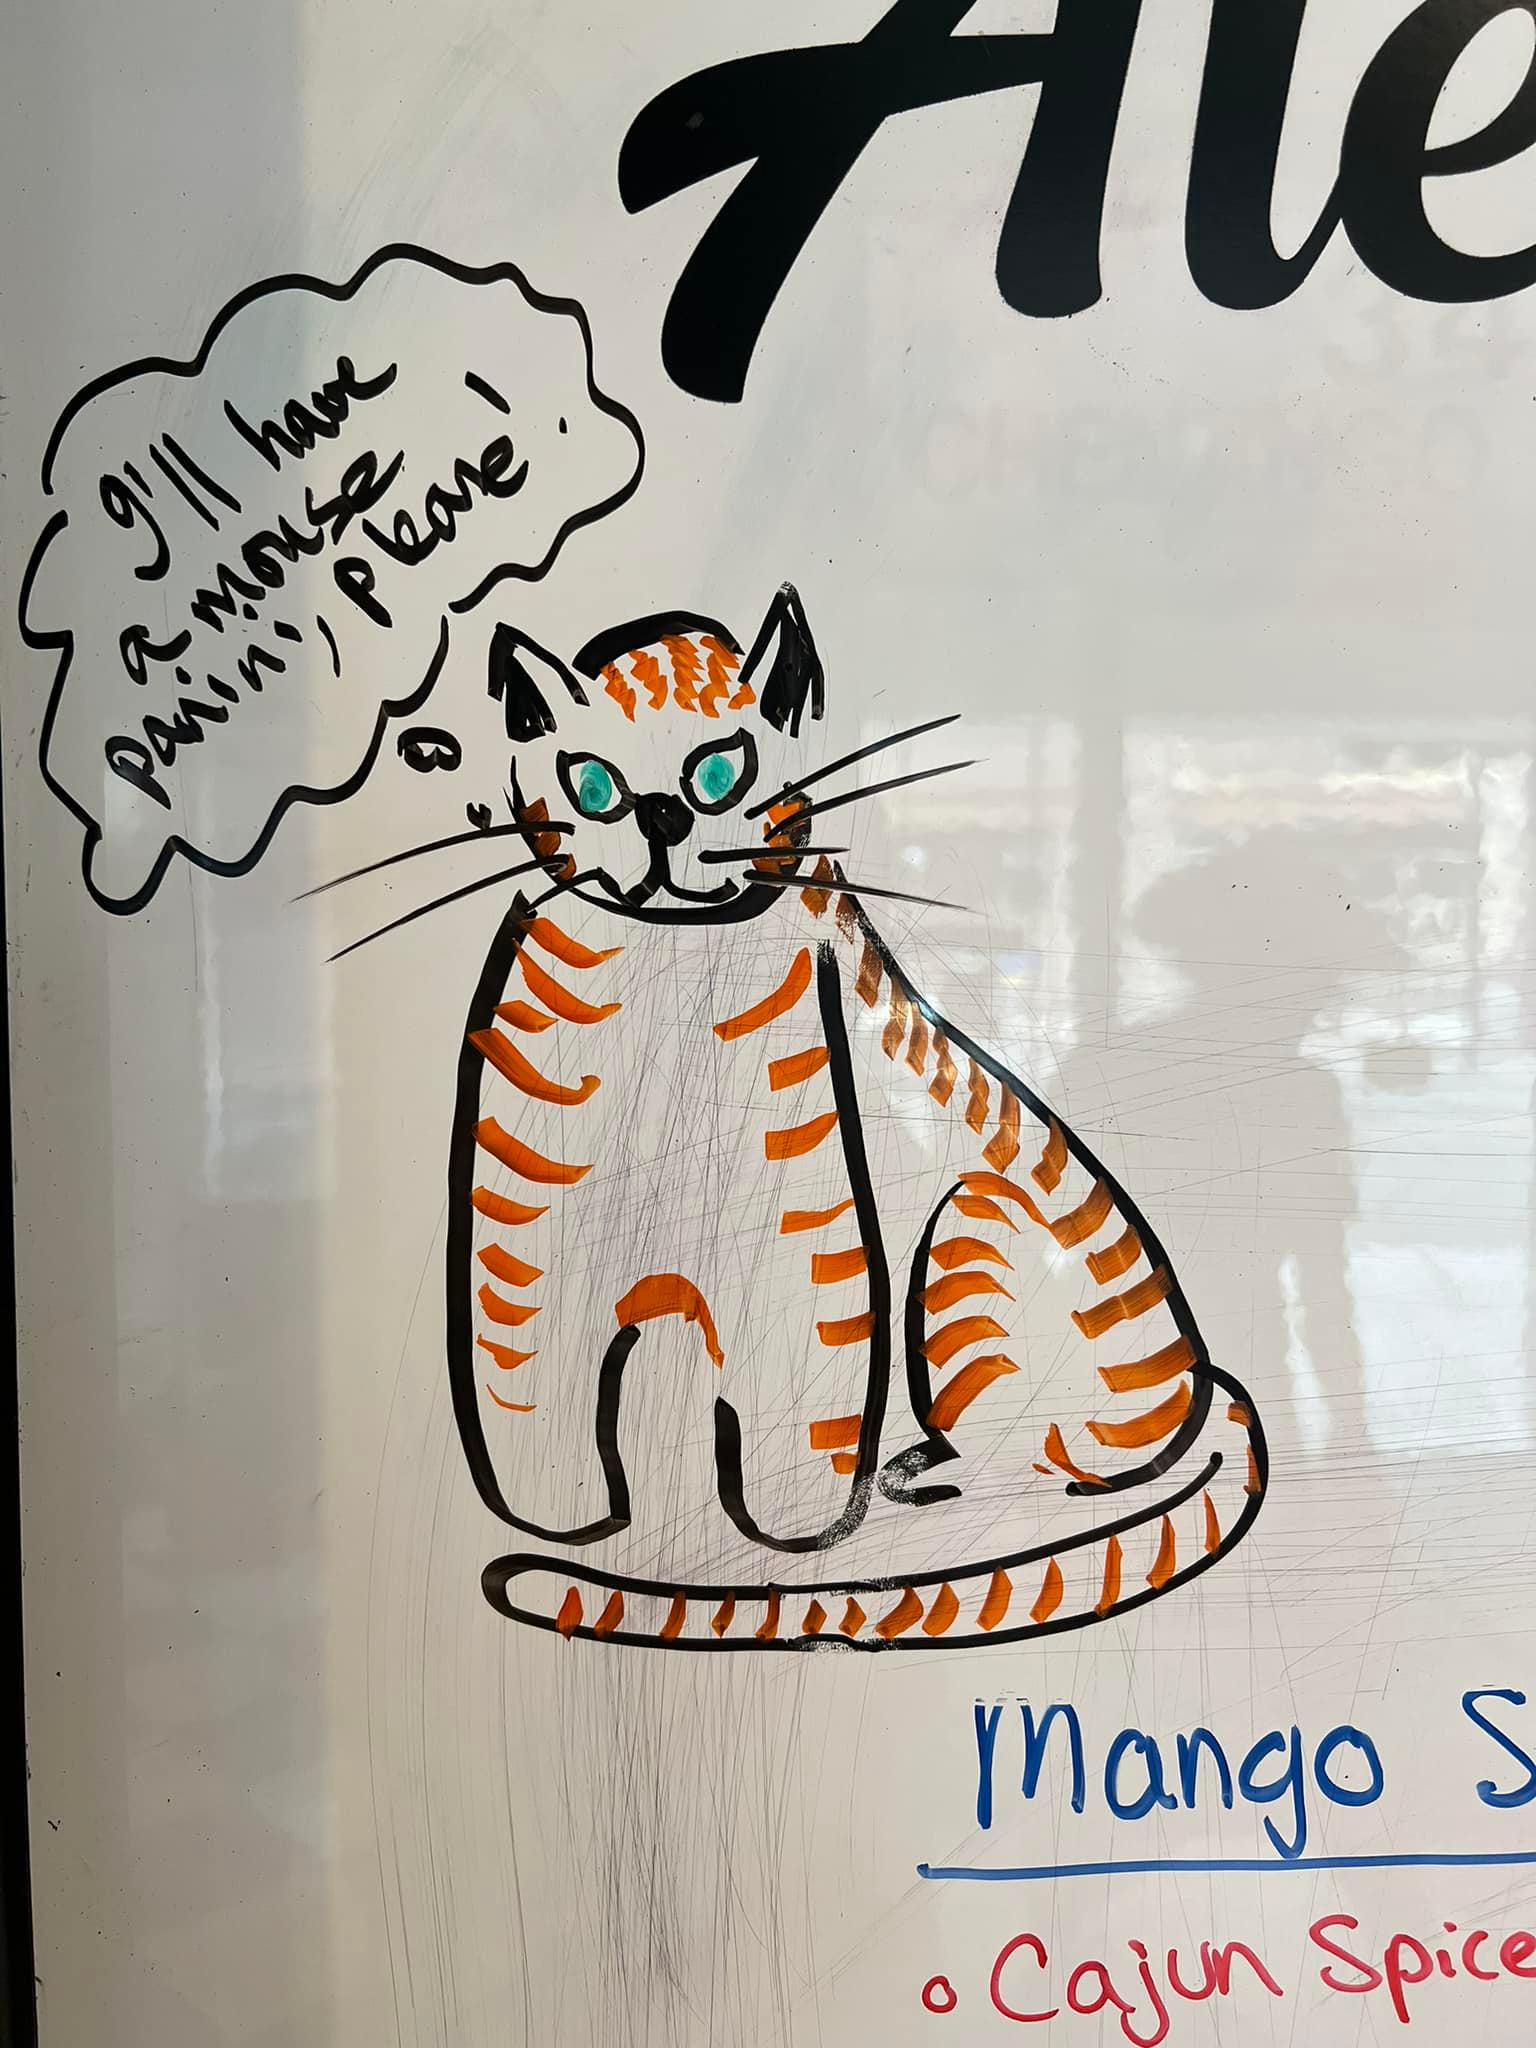 Ale
I'll have
a mouse
panini, please!
Mango S
Cajun Spice